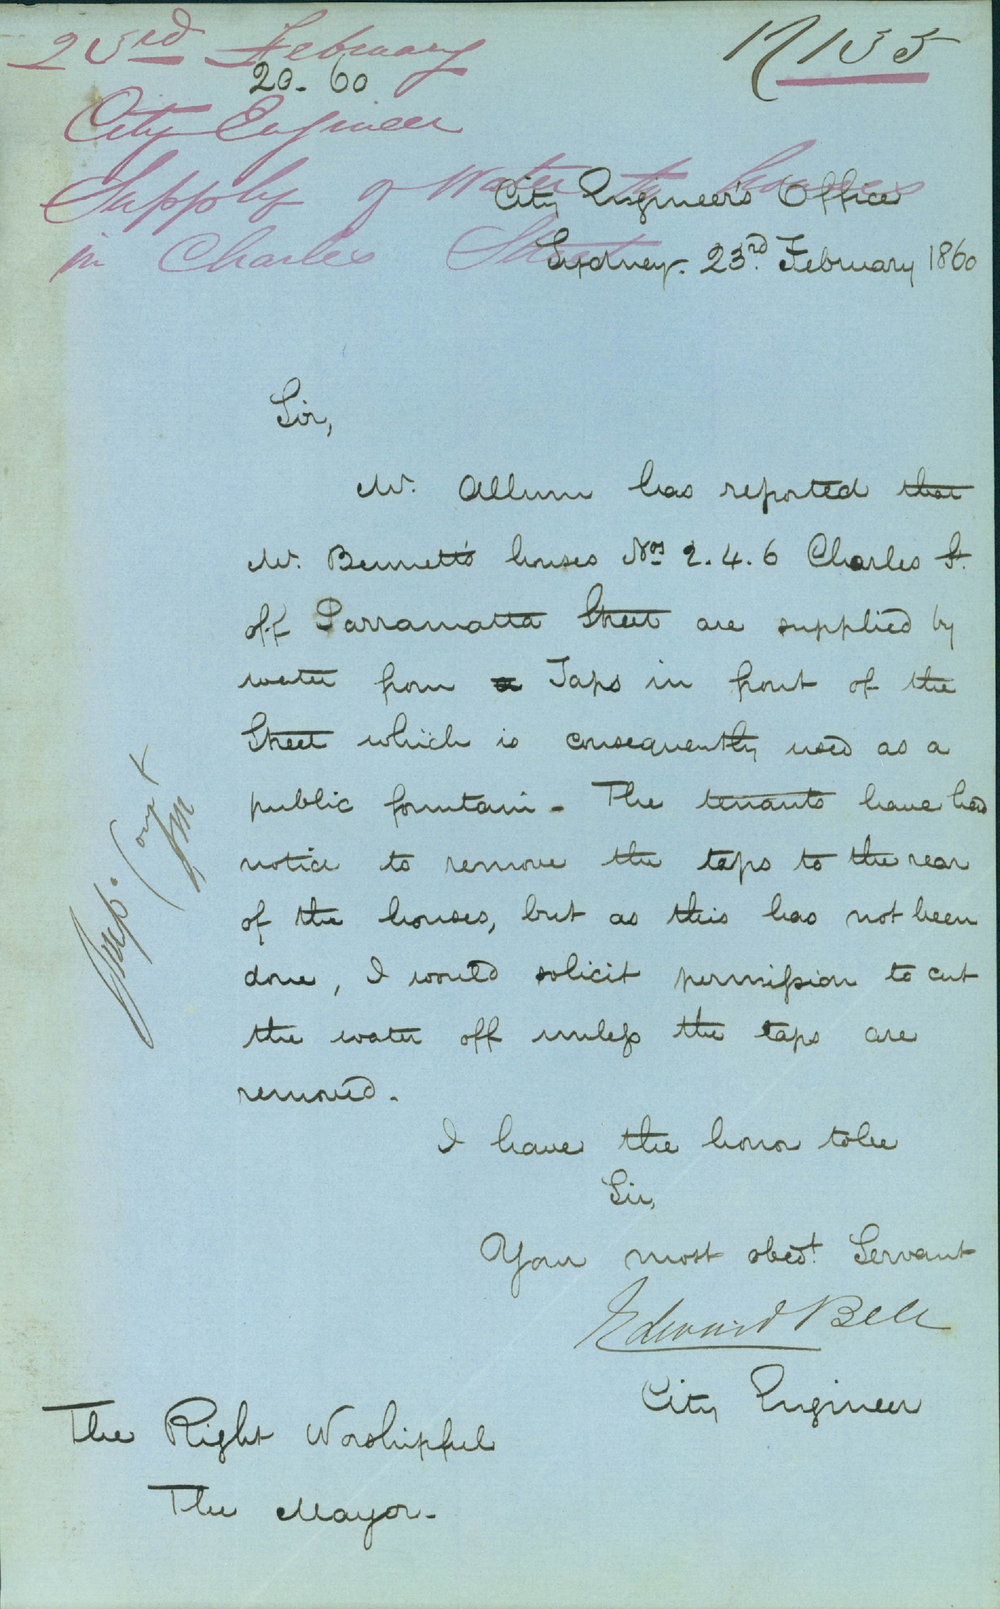 23rd February
17/155
20. 60
City Engineer
Supply of Water to houses
in Charles Street
City Engineer's Office
Sydney. 23rd. February 1860
Sir,
Mr. Allum has reported that
Mr. Bennett's houses Nos 2. 4. 6 Charles St.
off Parramatta Street are supplied by
water from a Taps in front of the
Street which is consequently used as a
public fountain - The tenants have had
notice to remove the taps to the rear
of the houses, but as this has not been
done, I would solicit permission to cut
the water off unless the taps are
removed.
I have the honor to be
Sir,
Your most obedt. Servant
Edward Bell
City Engineer
The Right Worshipful
The Mayor.